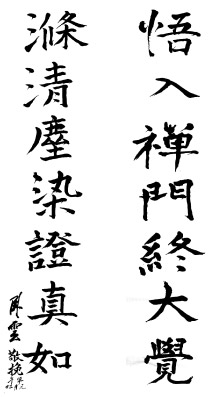 悟入禪門終大覺
滌清塵染證真如
敬挽